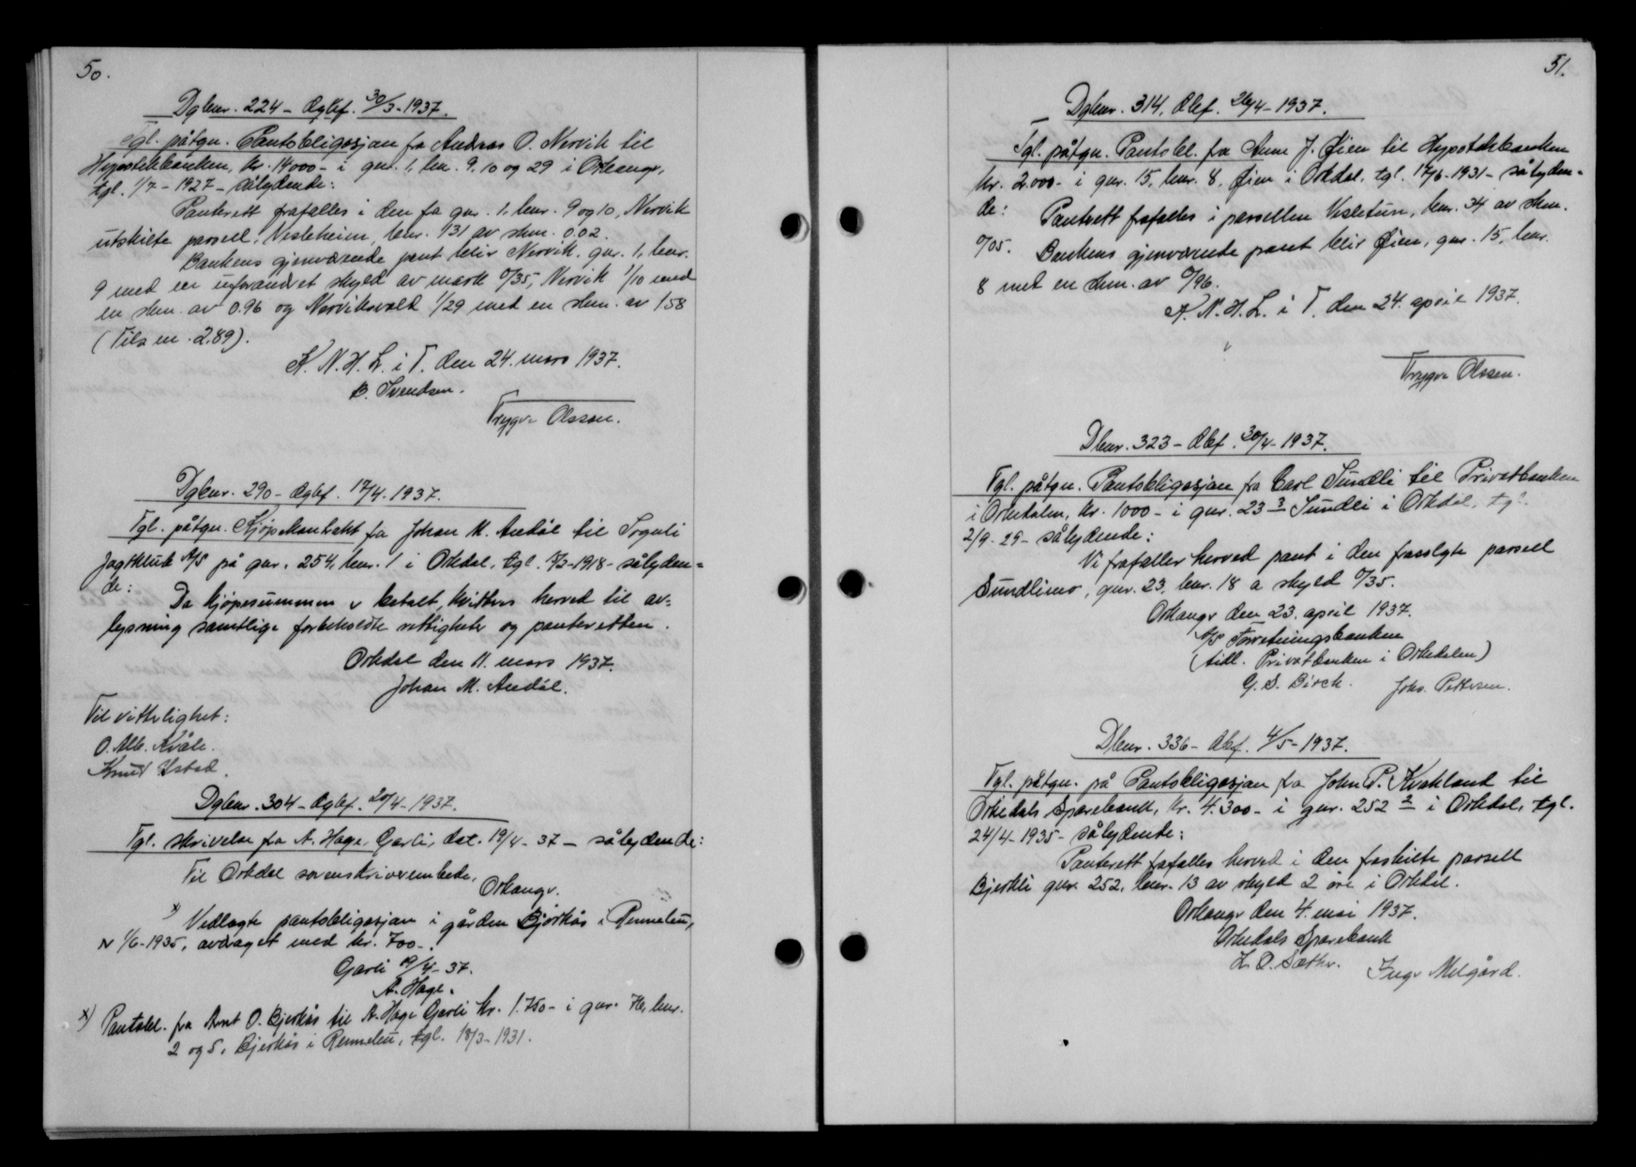 50.
Dgbnr. 224 - Dgbf. 30/3-1937.
Tgl. påtgn. Pantobligasjon fra Andreas O. Nervik til
Hypotekbanken, kr. 14000- i gnr. 1, bnr. 9, 10 og 29 i Orkanger,
tgl. 1/7 - 1927 - sålydende:
Panterett frafalles i den fra gnr. 1. bnr. 9 og 10, Nervik
utskilte parsell, Vesleheim, bnr. 1/31 av skm. 0.02.
Bankens gjenværende pant blir Nervik, gnr. 1, bnr.
9 med en uforandret skyld av mark 0/35, Nervik 1/10 med
en skm. av 0.96 og Nervikvald 1/29 med en skm. av 1.58
(Tils m. 2.89).
K. N. H. L. i T. den 24. mars 1937.
B. Svendsen.
Trygve Olssen.
Dgbnr. 290 - Dgbf. 17/4-1937.
Tgl. påtgn. Kjøpekontrakt fra Johan M. Andal til Sognli
Jagtklub A/S på gnr. 254, bnr. 1 i Orkdal, tgl. -1918- sålyden=
de:
Da kjøpesummen er betalt, kvitteres herved til av=
lysning samtlige forbeholdte rettigheter og panteretten.
Orkdal den 11. mars 1937.
Johan M. Andal.
Til vitterlighet:
O. Alb. Kvåle.
Knut Ustad.
Dgbnr. 304 - Dgbf. 20/4-1937.
Tgl. skrivelse fra A. Hage, Garli, dat. 19/4-37 - sålydende:
Til Orkdal sorenskriverembede,
Orkanger.
x) Vedlagte pantobligasjon i gården Bjørkås i Rennebu,
av 1/6-1935, avdraget med kr. 700-.
Garli 19/4-37.
A. Hage.
x) Pantobl. fra Arnt O. Bjerkås til A. Hage Garli kr. 1.750- i gnr. , bnr.
2 og 5, Bjerkås i Rennebu, tgl. 18/3-1931.
51.
Dgbnr. 314, Dbf. 26/4-1937.
Tgl. påtgn. Pantobl. fra Arne J. Øien til Hypotekbanken
kr. 2.000- i gnr. 15, bnr. 8, Øien i Orkdal, tgl. 17/6-1931- sålyden=
de:
Panterett frafalles i parsellen Vesletun, bnr. 34 av skm.
0/05. Bankens gjenværende pant blir Øien, gnr. 15, bnr.
8 med en skm. av 0/96.
K. N. H. L. i T. den 24. april 1937.
Trygve Olssen.
Dbnr. 323 - Dbf. 30/4-1937.
Tgl. påtgn. Pantobligasjon fra Carl Sundli til Privatbanken
i Orkedalen, kr. 1000- i gnr. 23 3 Sundli i Orkdal, tgl.
2/9-29- sålydende:
Vi frafaller herved pant i den frasolgte parsell
Sundlimo, gnr. 23, bnr. 18 a skyld 0/35.
Orkanger den 23. april 1937.
A/S Forretningsbanken
(tidl. Privatbanken i Orkedalen)
G. S. Birch. Johs. Pettersen.
Dbnr. 336 - Dbf. 4/5-1937.
Tgl. påtgn. på Pantobligasjon fra John P. Kvakland til
Orkedals Sparebank, kr. 4.300- i gnr. 252 2 i Orkdal, tgl.
24/4-1935- sålydende:
Panterett fafalles herved i den fraskilte parsell
Bjerkli gnr. 252, bnr. 13 av skyld 2 øre i Orkdal.
Orkanger den 4. mai 1937.
Orkedals Sparebank
L. O. Sæther. Inge Melgård.